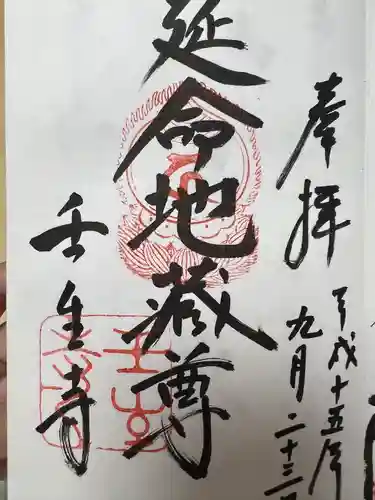 奉拝
平成十五年
九月二十三
延命地蔵尊
壬生寺